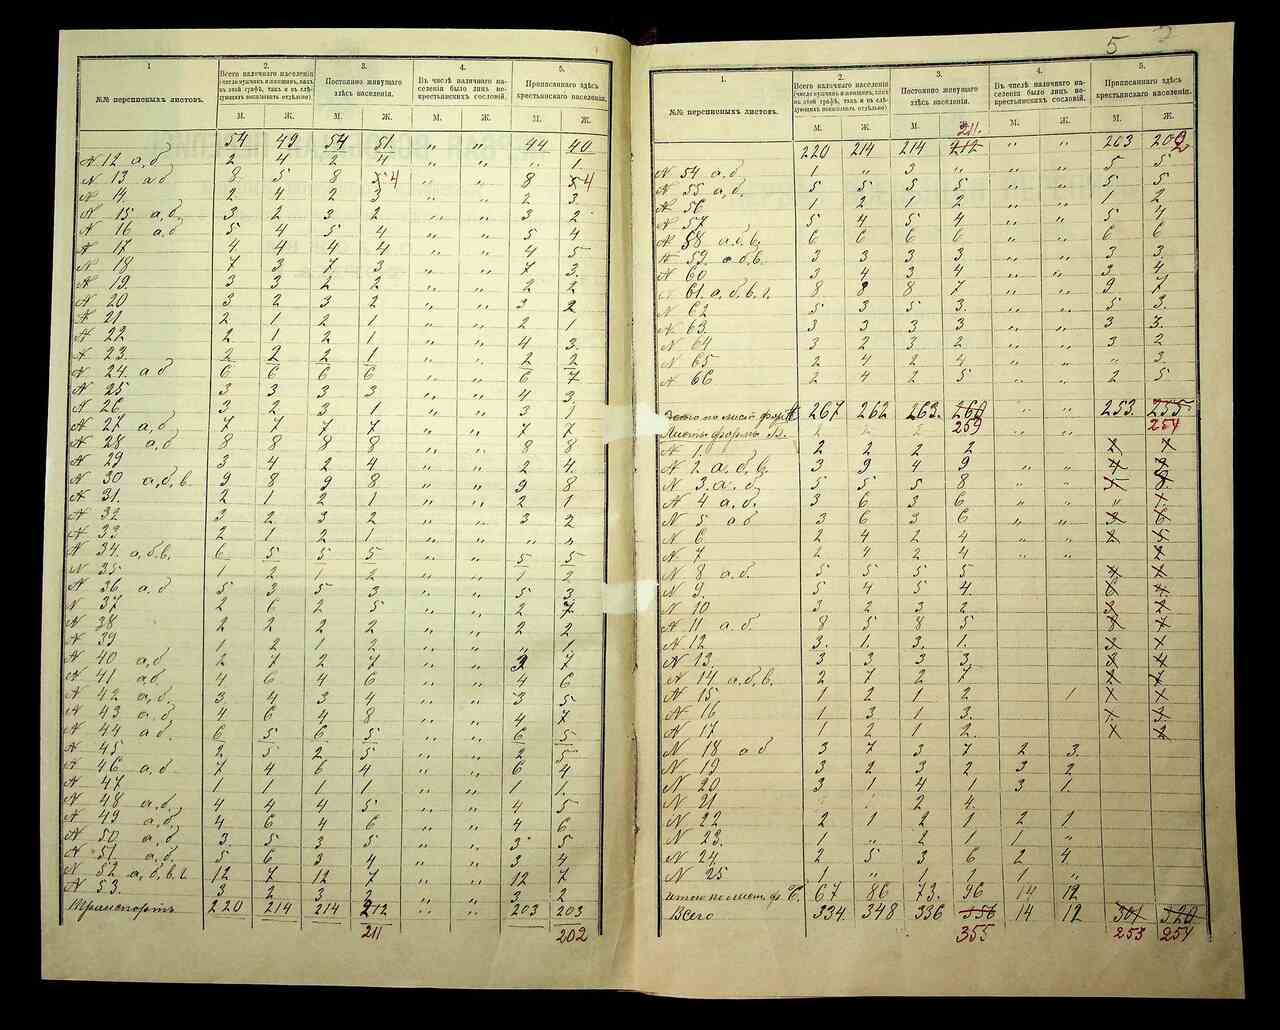 1
№№ переписныхъ листовъ.
2.
Всего наличнаго населенія
3.
Постоянно живущаго
здѣсь населенія.
4.
Въ числѣ наличнаго на-
селенія было лицъ не-
крестьянскихъ сословій.
5.
Приписаннаго здѣсь
крестьянскаго населенія.
М. Ж. М. Ж. М. Ж. М. Ж.
54 49 54 51 „ „ 44 40
N 12 а,б 2 4 2 4 „ „ „ 1
N 13 а,б 8 5 8 4 „ „ 8 4
N 14 2 4 2 3 „ „ 2 3
N 15 а,б 3 2 3 2 „ „ 3 2
N 16 а,б 5 4 5 4 „ „ 5 4
N 17 4 4 4 4 „ „ 4 5
N 18 7 3 7 3 „ „ 7 3
N 19 3 3 2 2 „ „ 2 2
N 20 3 2 3 2 „ „ 3 2
N 21 2 1 2 1 „ „ 2 1
N 22 2 1 2 1 „ „ 4 3
N 23 2 2 2 1 „ „ 2 2
N 24 а,б 6 6 6 6 „ „ 6 7
N 25 3 3 3 3 „ „ 4 3
N 26 3 2 3 1 „ „ 3 1
N 27 а,б 7 7 7 7 „ „ 7 7
N 28 а,б 8 8 8 8 „ „ 8 8
N 29 3 4 2 4 „ „ 2 4
N 30 а,б,в 9 8 9 8 „ „ 9 8
N 31 2 1 2 1 „ „ 2 1
N 32 3 2 3 2 „ „ 3 2
N 33 2 1 2 1 „ „ „ „
N 34 а,б,в. 6 5 5 5 „ „ 5 5
N 35 1 2 1 2 „ „ 1 2
N 36 а,б 5 3 5 3 „ „ 5 3
N 37 2 6 2 5 „ „ 2 7
N 38 2 2 2 2 „ „ 2 2
N 39 1 2 1 2 „ „ „ 1
N 40 а,б 2 7 2 7 „ „ 3 7
N 41 а,б 4 6 4 6 „ „ 4 6
N 42 а,б 3 4 3 4 „ „ 3 5
N 43 а,б 4 6 4 8 „ „ 4 7
N 44 а,б 6 5 6 5 „ „ 6 5
N 45 2 5 2 5 „ „ 2 5
N 46 а,б 7 4 6 4 „ „ 6 4
N 47 1 1 1 1 „ „ 1 1
N 48 а,б 4 4 4 5 „ „ 4 5
N 49 а,б 4 6 4 6 „ „ 4 6
N 50 а,б 3 5 3 5 „ „ 3 5
N 51 а,б 5 6 3 4 „ „ 3 4
N 52 а,б,в,г 12 7 12 7 „ „ 12 7
N 53 3 2 3 2 „ „ 3 2
Транспортъ 220 214 214 212 „ „ 203 203
211 202
5
1.
№№ переписныхъ листовъ.
2.
Всего наличнаго населенія
3.
Постоянно живущаго
здѣсь населенія.
4.
Въ числѣ наличнаго на-
селенія было лицъ не-
крестьянскихъ сословій.
5.
Приписаннаго здѣсь
крестьянскаго населенія.
М. Ж. М. Ж. М. Ж. М. Ж.
211.
220 214 214 212 203 202
N 54 а,б 1 „ 3 „ „ „ 5 5
N 55 а,б 5 5 5 5 „ „ 5 5
N 56 1 2 1 2 1 2
N 57 5 4 5 4 „ „ 5 4
N 58 а,б,в. 6 6 6 6 „ „ 6 6
N 59 а,б,в. 3 3 3 3 „ „ 3 3
N 60 3 4 3 4 „ „ 3 4
N 61 а,б,в,г. 8 8 8 7 „ „ 9 7
N 62 5 3 5 3 „ „ 5 3
N 63 3 3 3 3 „ „ 3 3
N 64 3 2 3 2 „ „ 3 2
N 65 2 4 2 4 „ „ „ 3
N 66 2 4 2 5 „ „ 2 5
Всего по лист. форм. А. 267 262 263 260 „ „ 253 255
Листы формы Б. 259 254
N 1 2 2 2 2
N 2 а,б,в. 3 9 4 9 „ „
N 3 а,б 5 5 5 8
N 4 а,б 3 6 3 6 „ „
N 5 а,б 3 6 3 6 „ „
N 6 2 4 2 4 „ „
N 7 2 4 2 4 „ „
N 8 а,б 5 5 5 5
N 9 5 4 5 4
N 10 3 2 3 2
N 11 а,б 8 5 8 5
N 12 3 1 3 1
N 13 3 3 3 3
N 14 а,б,в. 2 7 2 7
N 15 1 2 1 2 1
N 16 1 3 1 3
N 17 1 2 1 2
N 18 а,б 3 7 3 7 2 3
N 19 3 2 3 2 3 2
N 20 3 1 4 1 3 1
N 21 2 4
N 22 2 1 2 1 2 1
N 23 1 „ 2 1 1 „
N 24 2 5 3 6 2 4
N 25 1 „ 1 1 1 „
Итого по лист. ф. Б. 67 86 73 96 14 12
Всего 334 348 336 356 14 12 301 320
355 253 254